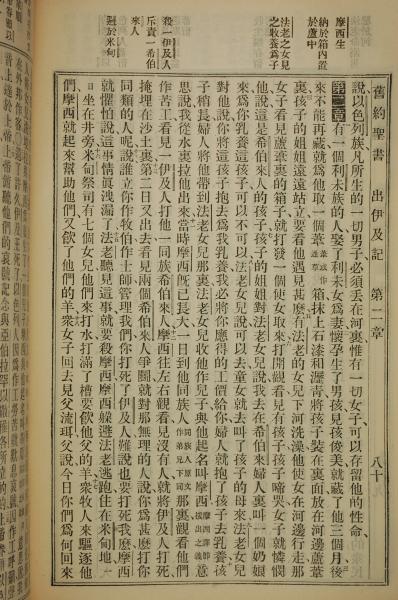 舊約聖書 出伊及記 第二章 八十
摩西生
納於箱內置
於蘆中
法老之女見
之收養為子
殺一伊及人
斥責一希伯
來人
避於米甸
說以色列族凡所生的一切男子必須丟在河裏惟有一切女子可以存留他的性命
第二章 有一個利未族的人娶了利未女為妻懷孕生了男孩見孩俊美就藏了他三個月後
來不能再藏就為他取一個葦葦或作蒲草箱抹上石漆和瀝青將孩子裝在裏面放在河邊蘆葦
裏孩子的姐姐遠遠站立要看他遇見甚麽有法老的女兒下河洗澡他使女在河邊行走那
女子看見蘆葦裏的箱子就打發一個使女取來打開觀看見有孩子孩子啼哭女子就憐憫
他說這是希伯來人的孩子孩子的姐姐對法老女兒說我去在希伯來婦人裏叫一個奶娘
來為你乳養這孩子可以不可以法老女兒說可以去童女就去叫了孩子的母來法老女兒
對他說你將這孩子抱去為我乳養我必將你應得的工價給你婦人就抱了孩子去乳養孩
子稍長婦人將他帶到法老女兒那裏法老女兒收他作兒子與他起名叫摩西摩西譯卽拉出之義意
思說我從水裏拉他出來當時摩西旣已長大一日到他同族人同族人原文作弟兄下同那裏觀看他們
作苦工看見一伊及人打他一同族希伯來人摩西往左右觀看見沒有人就將伊及人打死
掩埋在沙土裏第二日又出去看見兩個希伯來人爭鬭就對那無理的人說你為甚麽打你
同類的人呢說誰立你作牧伯作士師管理我們你打死了伊及人難說也要打死我麽摩西
就懼怕說這事情眞洩漏了法老聽見這事就要殺摩西摩西躱避法老逃跑住在米甸地一
日坐在井旁米甸祭司有七個女兒他們來打水打滿了槽要飲他父的羊衆牧人來驅逐他
們摩西就起來幫助他們又飲了他們的羊衆女子回去見父流珥父說今日你們為何回來